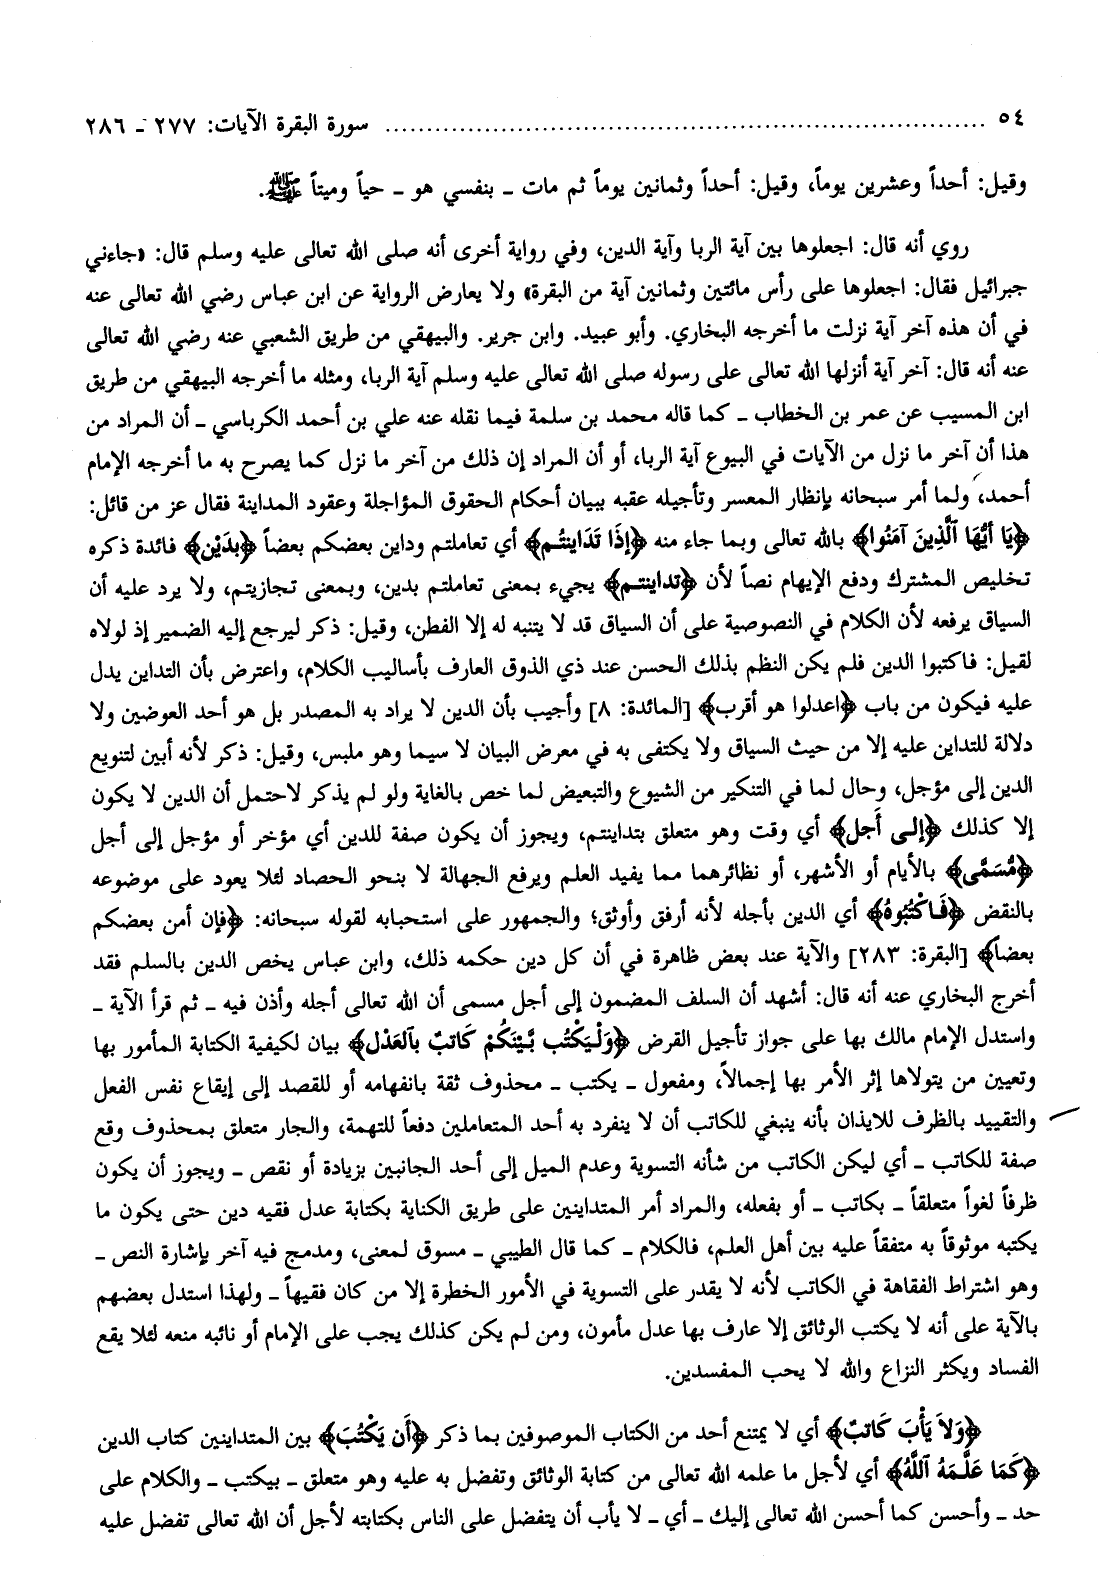 ٥٤ ........................................................................ سورة البقرة الآيات: ٢٧٧ ـ ٢٨٦
وقيل: أحداً وعشرين يوماً، وقيل: أحداً وثمانين يوماً ثم مات ـ بنفسي هو ـ حياً وميتاً ﷺ.
روي أنه قال: اجعلوها بين آية الربا وآية الدين، وفي رواية أخرى أنه صلى الله تعالى عليه وسلم قال: «جاءني
جبرائيل فقال: اجعلوها على رأس مائتين وثمانين آية من البقرة» ولا يعارض الرواية عن ابن عباس رضي الله تعالى عنه
في أن هذه آخر آية نزلت ما أخرجه البخاري. وأبو عبيد. وابن جرير. والبيهقي من طريق الشعبي عنه رضي الله تعالى
عنه أنه قال: آخر آية أنزلها الله تعالى على رسوله صلى الله تعالى عليه وسلم آية الربا، ومثله ما أخرجه البيهقي من طريق
ابن المسيب عن عمر بن الخطاب ـ كما قاله محمد بن سلمة فيما نقله عنه علي بن أحمد الكرباسي ـ أن المراد من
هذا أن آخر ما نزل من الآيات في البيوع آية الربا، أو أن المراد إن ذلك من آخر ما نزل كما يصرح به ما أخرجه الإمام
أحمد، ولما أمر سبحانه بإنظار المعسر وتأجيله عقبه ببيان أحكام الحقوق المؤاجلة وعقود المداينة فقال عز من قائل:
﴿يَا أَيُّهَا ٱلَّذِينَ آمَنُوا﴾ بالله تعالى وبما جاء منه ﴿إِذَا تَدَاينتُم﴾ أي تعاملتم وداين بعضكم بعضاً ﴿بِدَيْنٍ﴾ فائدة ذكره
تخليص المشترك ودفع الإيهام نصاً لأن ﴿تداينتم﴾ يجيء بمعنى تعاملتم بدين، وبمعنى تجازيتم، ولا يرد عليه أن
السياق يرفعه لأن الكلام في النصوصية على أن السياق قد لا يتنبه له إلا الفطن، وقيل: ذكر ليرجع إليه الضمير إذ لولاه
لقيل: فاكتبوا الدين فلم يكن النظم بذلك الحسن عند ذي الذوق العارف بأساليب الكلام، واعترض بأن التداين يدل
عليه فيكون من باب ﴿اعدلوا هو أقرب﴾ [المائدة: ٨] وأجيب بأن الدين لا يراد به المصدر بل هو أحد العوضين ولا
دلالة للتداين عليه إلا من حيث السياق ولا يكتفى به في معرض البيان لا سيما وهو ملبس، وقيل: ذكر لأنه أبين لتنويع
الدين إلى مؤجل، وحال لما في التنكير من الشيوع والتبعيض لما خص بالغاية ولو لم يذكر لاحتمل أن الدين لا يكون
إلا كذلك ﴿إِلى أَجل﴾ أي وقت وهو متعلق بتداينتم، ويجوز أن يكون صفة للدين أي مؤخر أو مؤجل إلى أجل
﴿مُّسَمًّى﴾ بالأيام أو الأشهر، أو نظائرهما مما يفيد العلم ويرفع الجهالة لا بنحو الحصاد لئلا يعود على موضوعه
بالنقض ﴿فَاكْتُبُوهُ﴾ أي الدين بأجله لأنه أرفق وأوثق؛ والجمهور على استحبابه لقوله سبحانه: ﴿فإن أمن بعضكم
بعضا﴾ [البقرة: ٢٨٣] والآية عند بعض ظاهرة في أن كل دين حكمه ذلك، وابن عباس يخص الدين بالسلم فقد
أخرج البخاري عنه أنه قال: أشهد أن السلف المضمون إلى أجل مسمى أن الله تعالى أجله وأذن فيه ـ ثم قرأ الآية ـ
واستدل الإمام مالك بها على جواز تأجيل القرض ﴿وَلْيَكْتُب بَّيْنَكُمْ كَاتبٌ بٱلعَدْل﴾ بيان لكيفية الكتابة المأمور بها
وتعيين من يتولاها إثر الأمر بها إجمالاً، ومفعول ـ يكتب ـ محذوف ثقة بانفهامه أو للقصد إلى إيقاع نفس الفعل
والتقييد بالظرف للايذان بأنه ينبغي للكاتب أن لا ينفرد به أحد المتعاملين دفعاً للتهمة، والجار متعلق بمحذوف وقع
صفة للكاتب ـ أي ليكن الكاتب من شأنه التسوية وعدم الميل إلى أحد الجانبين بزيادة أو نقص ـ ويجوز أن يكون
ظرفاً لغواً متعلقاً ـ بكاتب ـ أو بفعله، والمراد أمر المتداينين على طريق الكناية بكتابة عدل فقيه دين حتى يكون ما
يكتبه موثوقاً به متفقاً عليه بين أهل العلم، فالكلام ـ كما قال الطيبي ـ مسوق لمعنى، ومدمج فيه آخر بإشارة النص ـ
وهو اشتراط الفقاهة في الكاتب لأنه لا يقدر على التسوية في الأمور الخطرة إلا من كان فقيهاً ـ ولهذا استدل بعضهم
بالآية على أنه لا يكتب الوثائق إلا عارف بها عدل مأمون، ومن لم يكن كذلك يجب على الإمام أو نائبه منعه لئلا يقع
الفساد ويكثر النزاع والله لا يحب المفسدين.
﴿وَلاَ يَأْبَ كَاتبٌ﴾ أي لا يمتنع أحد من الكتاب الموصوفين بما ذكر ﴿أَن يَكْتُبَ﴾ بين المتداينين كتاب الدين
﴿كَمَا عَلَّمَهُ ٱللَّهُ﴾ أي لأجل ما علمه الله تعالى من كتابة الوثائق وتفضل به عليه وهو متعلق ـ بيكتب ـ والكلام على
حد ـ وأحسن كما أحسن الله تعالى إليك ـ أي ـ لا يأب أن يتفضل على الناس بكتابته لأجل أن الله تعالى تفضل عليه